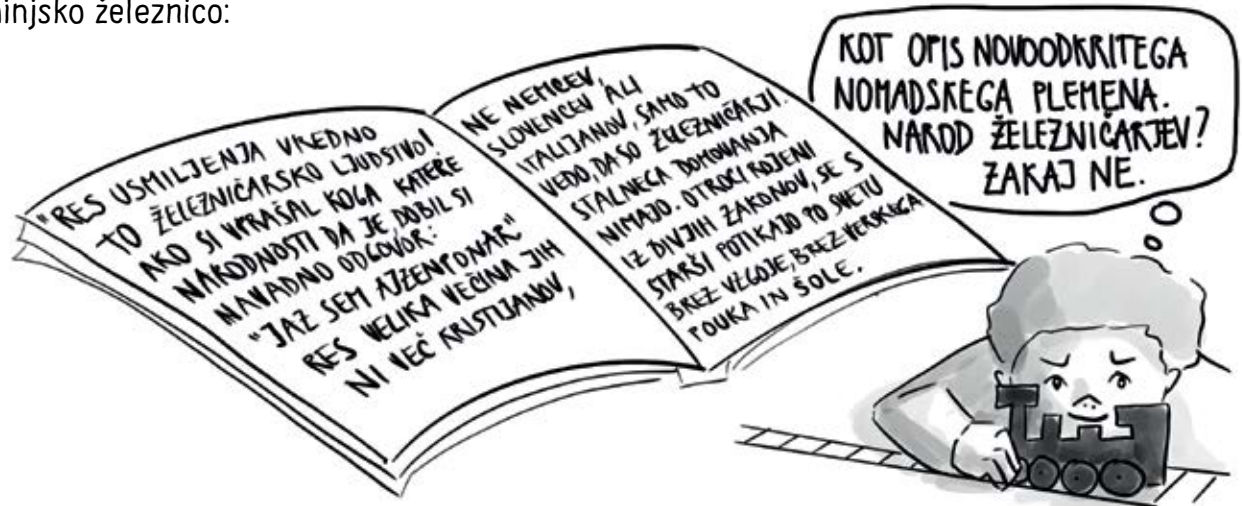 injsko železnico:
"RES USMILJENJA VREDNO
TO ŽELEZNIČARSKO LJUDSTVO!
AKO SI VPRAŠAL KOGA KATERE
NARODNOSTI DA JE, DOBIL SI
NAVADNO ODGOVOR:
"JAZ SEM AJZENPONAR"
RES VELIKA VEČINA JIH
NI VEČ KRISTIJANOV,
NE NEMCEV,
SLOVENCEV ALI
ITALIJANOV, SAMO TO
VEDO, DA SO ŽELEZNIČARJI.
STALNEGA DOMOVANJA
NIMAJO. OTROCI ROJENI
IZ DIVJIH ZAKONOV, SE S
STARŠI POTIKAJO PO SVETU
BREZ VZGOJE, BREZ VERSKEGA
POUKA IN ŠOLE.
KOT OPIS NOVOODKRITEGA
NOMADSKEGA PLEMENA.
NAROD ŽELEZNIČARJEV?
ZAKAJ NE.